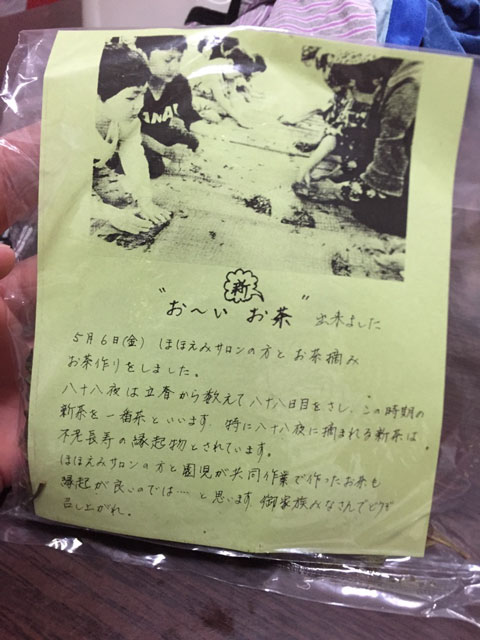 NAN
新
"お〜い お茶" 出来ました
5月6日(金) ほほえみサロンの方と お茶摘み
お茶作りをしました。
八十八夜は立春から数えて八十八日目をさし、この時期の
新茶を一番茶といいます。特に八十八夜に摘まれる新茶は
不老長寿の縁起物とされています。
ほほえみサロンの方と園児が共同作業で作ったお茶も
縁起が良いのでは…と思います。御家族みなさんでどうぞ
召し上がれ。